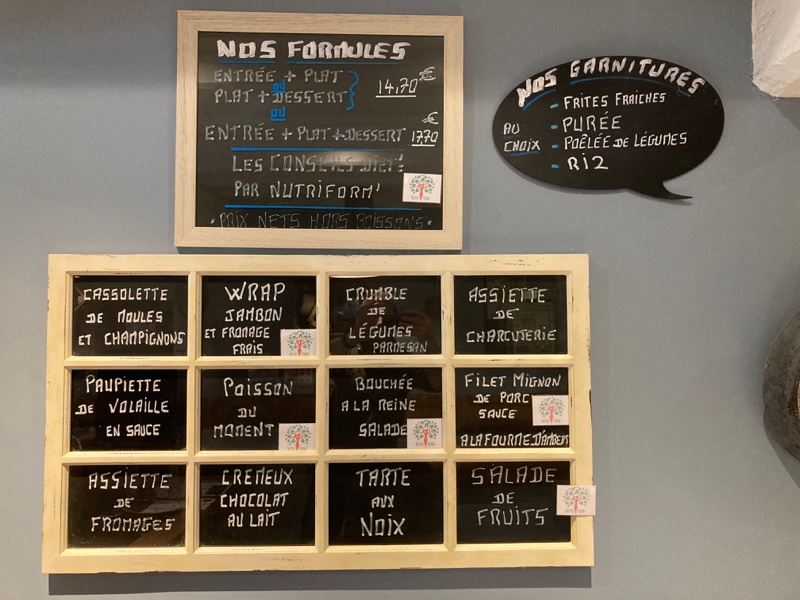 NOS FORMULES
ENTRÉE + PLAT
OU
PLAT + DESSERT
14,70€
OU
ENTRÉE + PLAT + DESSERT 17,70€
LES CONSEILS DIET!
PAR NUTRIFORM'
* PRIX NETS HORS BOISSONS *
NOS GARNITURES
AU CHOIX
- FRITES FRAICHES
- PURÉE
- POÊLÉE DE LÉGUMES
- RIZ
CASSOLETTE
DE MOULES
ET CHAMPIGNONS
WRAP
JAMBON
ET FROMAGE
FRAIS
CRUMBLE
DE
LÉGUMES
+ PARMESAN
ASSIETTE
DE
CHARCUTERIE
PAUPIETTE
DE VOLAILLE
EN SAUCE
POISSON
DU
MOMENT
BOUCHÉE
A LA REINE
SALADE
FILET MIGNON
DE PORC
SAUCE
A LA FOURME D'AMBERT
ASSIETTE
DE
FROMAGES
CRÉMEUX
CHOCOLAT
AU LAIT
TARTE
AUX
NOIX
SALADE
DE
FRUITS